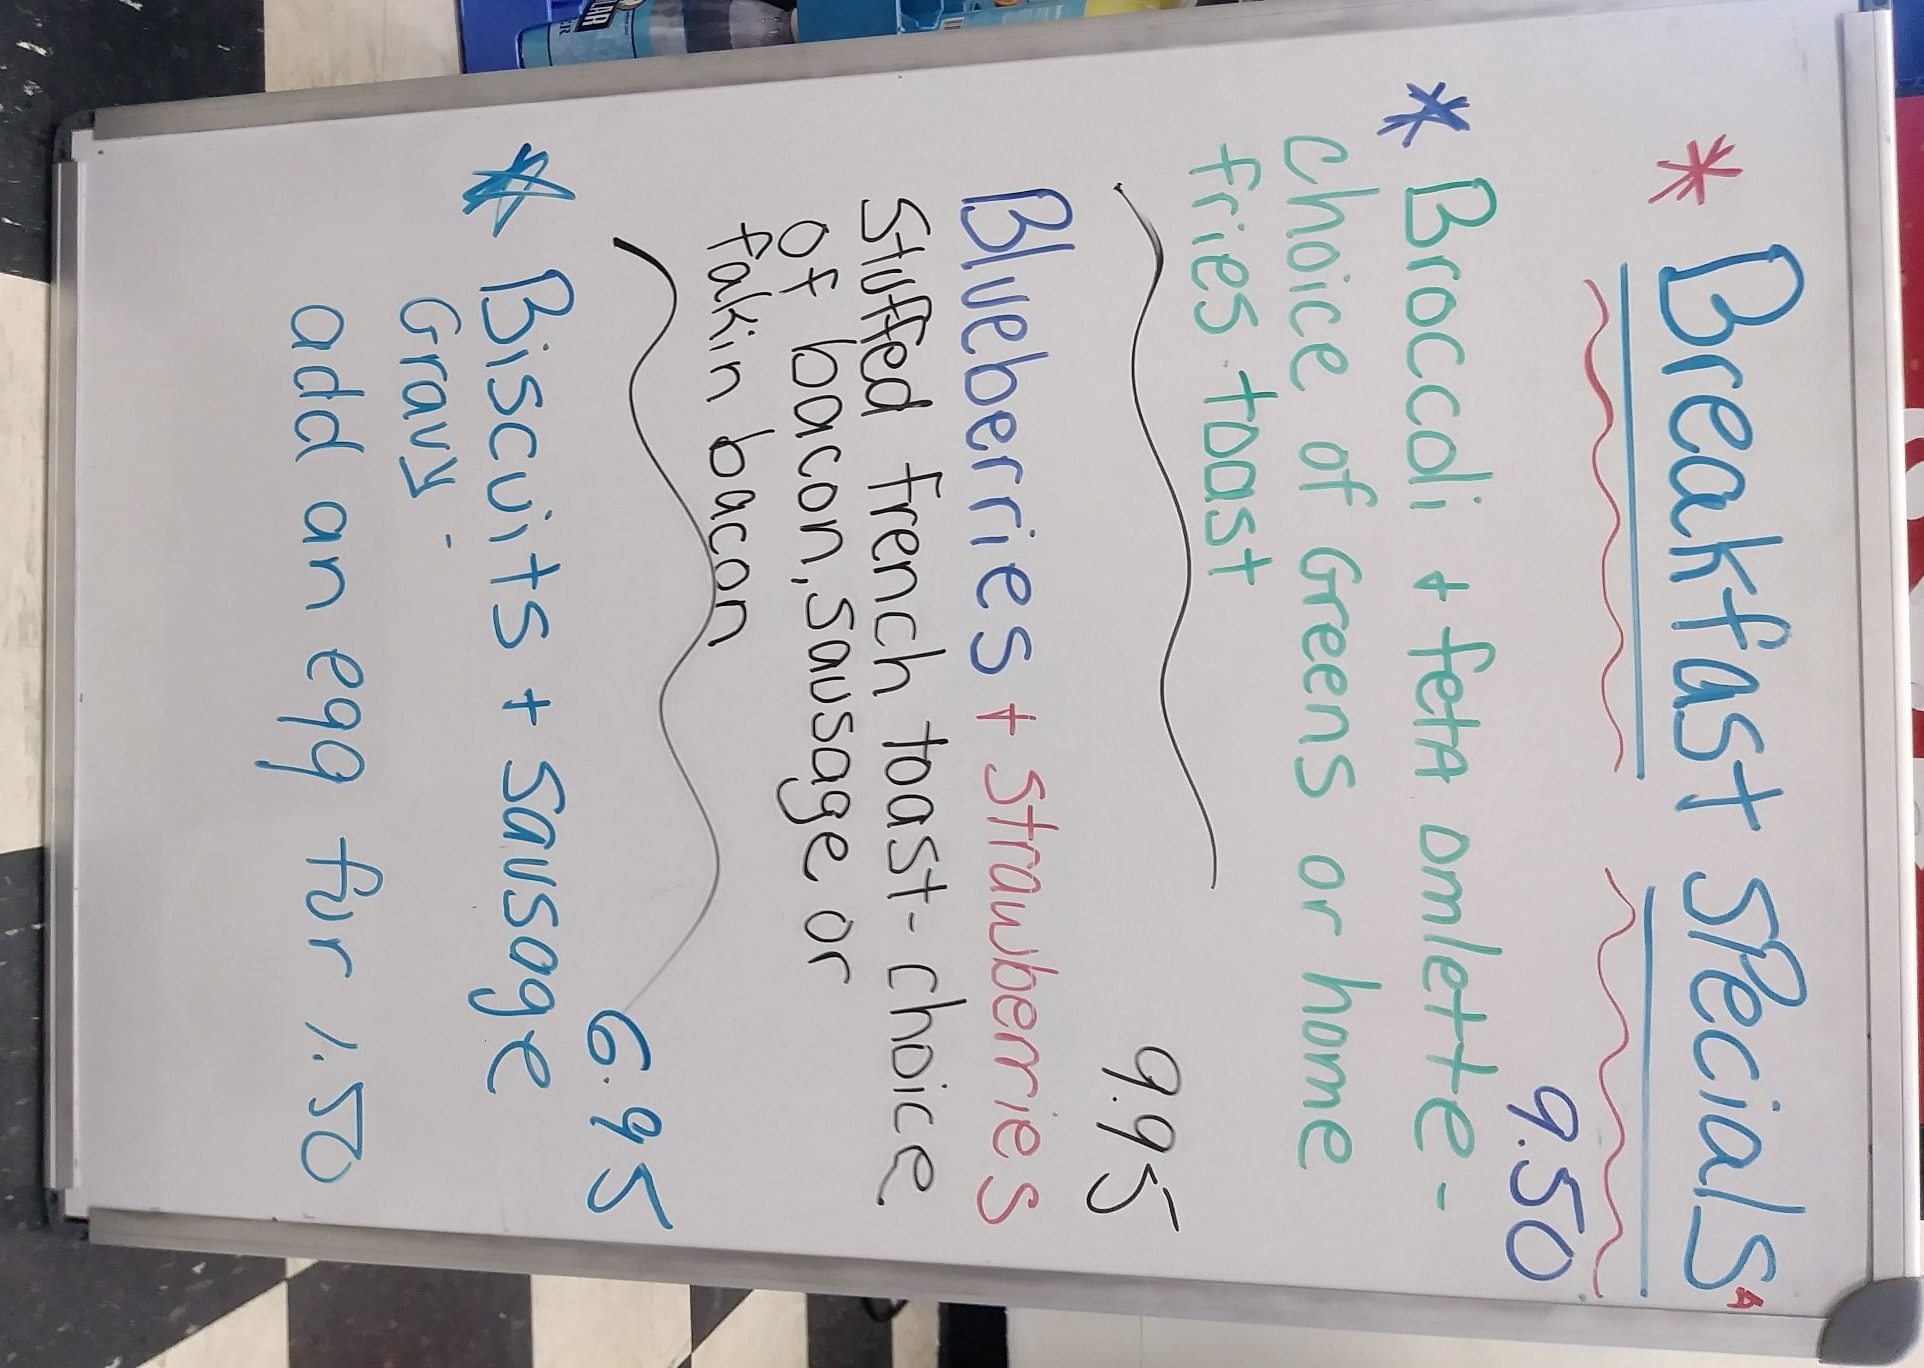 * Breakfast SPecialS
9.50
* Broccoli + fetA omlette -
choice of Greens or home
fries toast
9.95
Blueberries + Strawberries
Stuffed french toast - choice
of bacon, sausage or
fakin bacon
6.95
* Biscuits + Sausage
Gravy -
add an egg fur 1.50